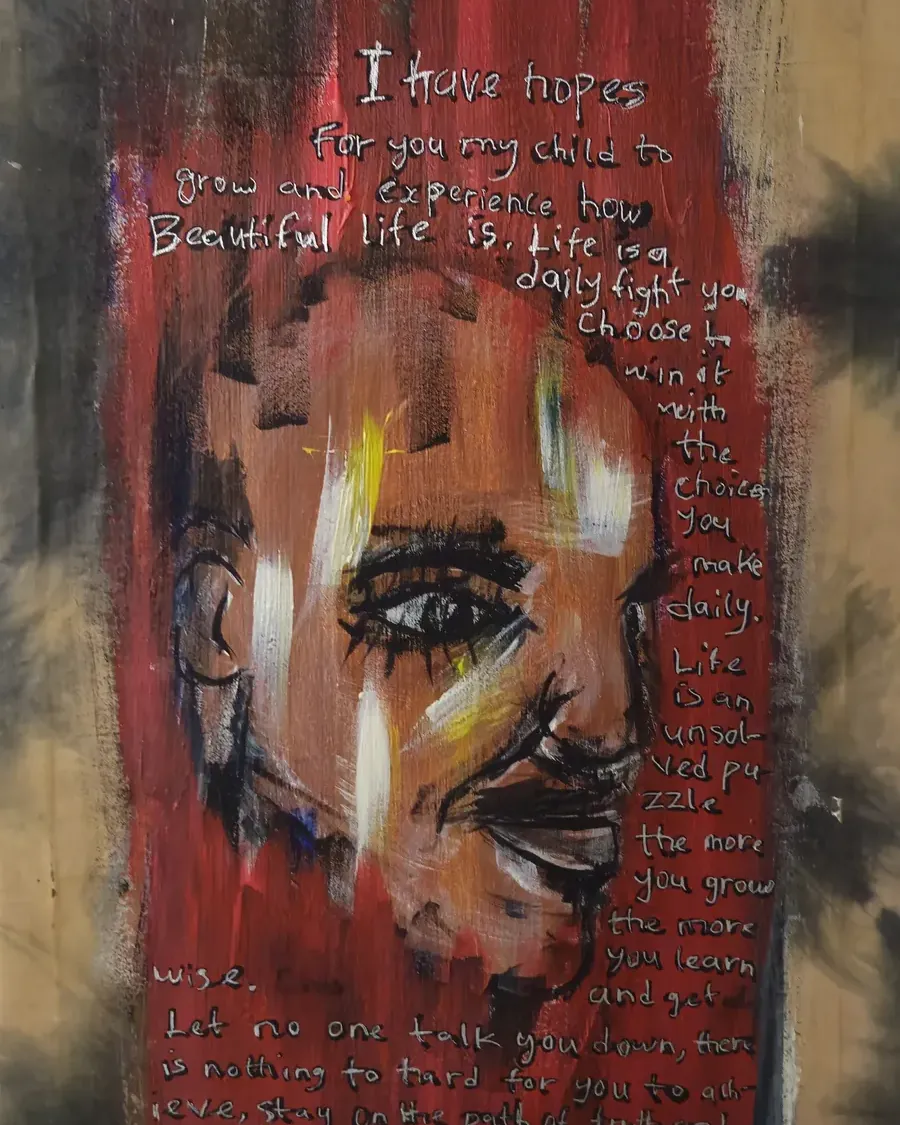 I Have hopes
For you my child to
grow and experience how
Beautiful life is. Life is a
daily fight you
Choose to
win it
with
the
choices
you
make
daily.
Life
is an
unsol-
ved pu-
zzle
the more
you grow
the more
you learn
and get
wise.
Let no one talk you down, there
is nothing to hard for you to ach-
ieve, stay on the path of truth and